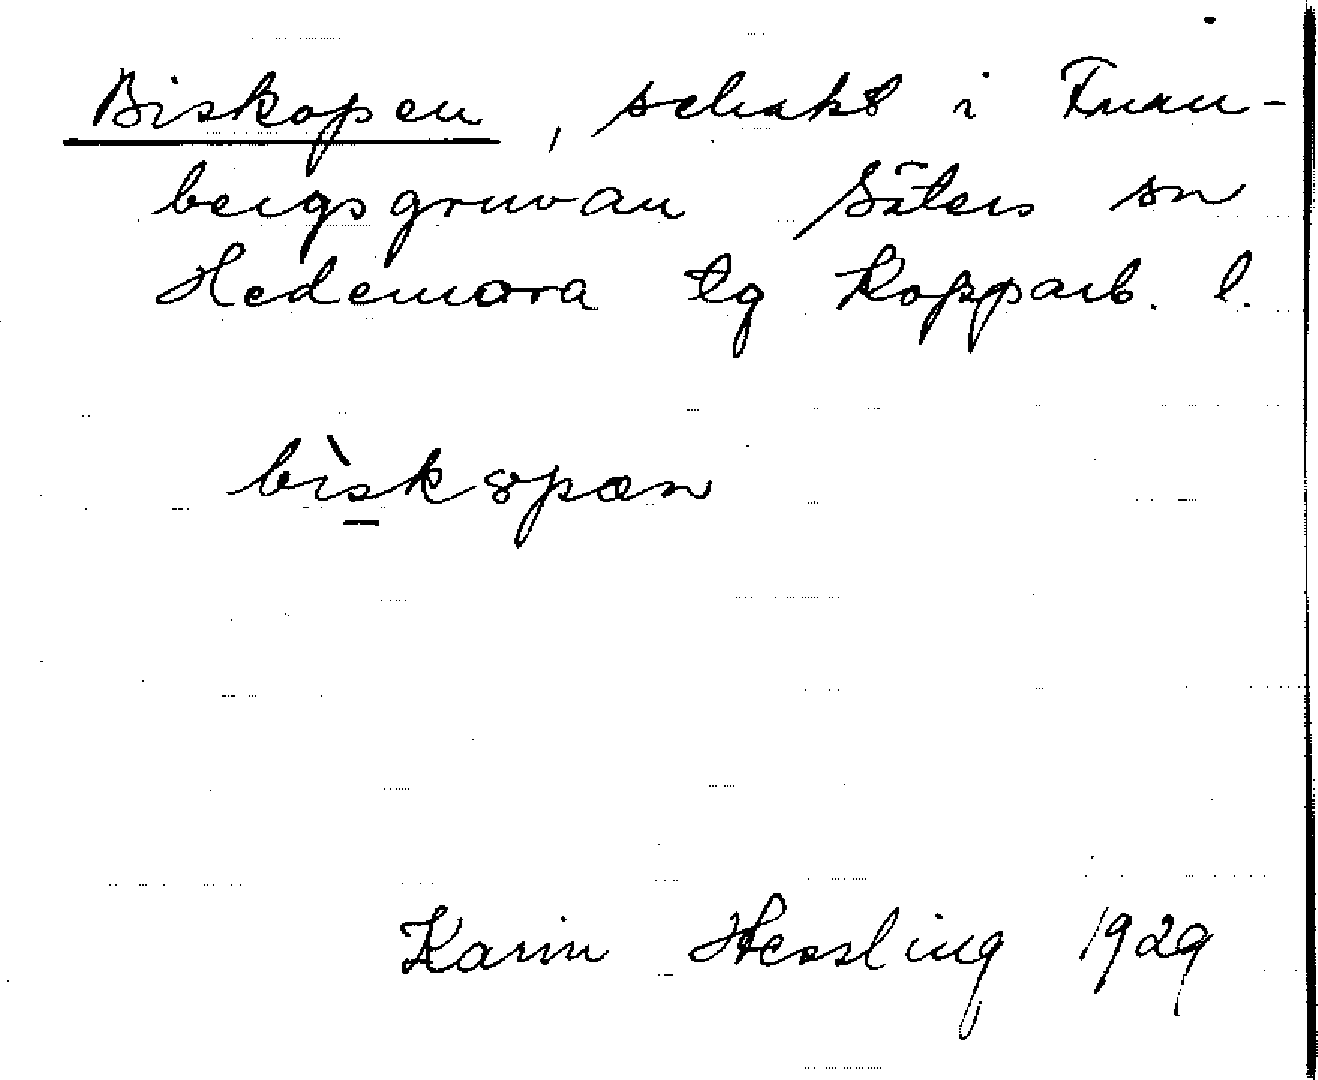 Biskopen, schakt i Finn-
bergsgruvan Säters sn
Hedemora tg Kopparb. l.
bìskopæn
Karin Hessling 1929